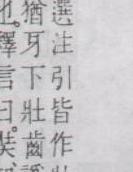 選注引皆作
猶牙下壯齒
也。釋言曰。奘